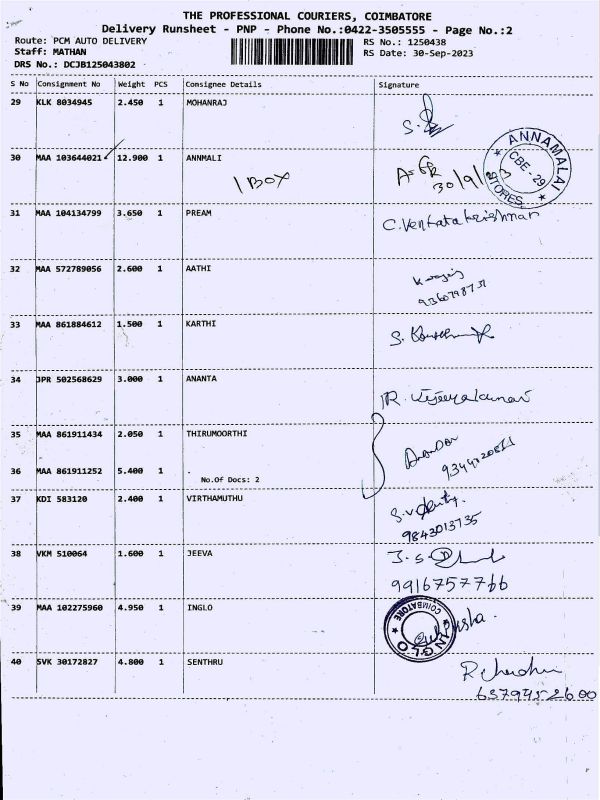 THE PROFESSIONAL COURIERS, COIMBATORE
Delivery Runsheet - PNP - Phone No.:0422-3505555 - Page No.:2
Route: PCM AUTO DELIVERY
RS No.: 1250438
Staff: MATHAN
RS Date: 30-Sep-2023
DRS No.: DCJB125043802
S No Consignment No Weight PCS Consignee Details Signature
29 KLK 8034945 2.450 1 MOHANRAJ
30 MAA 103644021 12.900 1 ANNMALI
1 BOX
30/9/
ANNAMALAI
CBE - 29
STORES
31 MAA 104134799 3.650 1 PREAM
C.Venkatakrishnan
32 MAA 572789056 2.600 1 AATHI
9360798731
33 MAA 861884612 1.500 1 KARTHI
34 JPR 502568629 3.000 1 ANANTA
R.
35 MAA 861911434 2.050 1 THIRUMOORTHI
36 MAA 861911252 5.400 1
No.Of Docs: 2
37 KDI 583120 2.400 1 VIRTHAMUTHU
9843013735
38 VKM 510064 1.600 1 JEEVA
9916757766
39 MAA 102275960 4.950 1 INGLO
COIMBATORE
INGLO
40 SVK 30172827 4.800 1 SENTHRU
6379452600